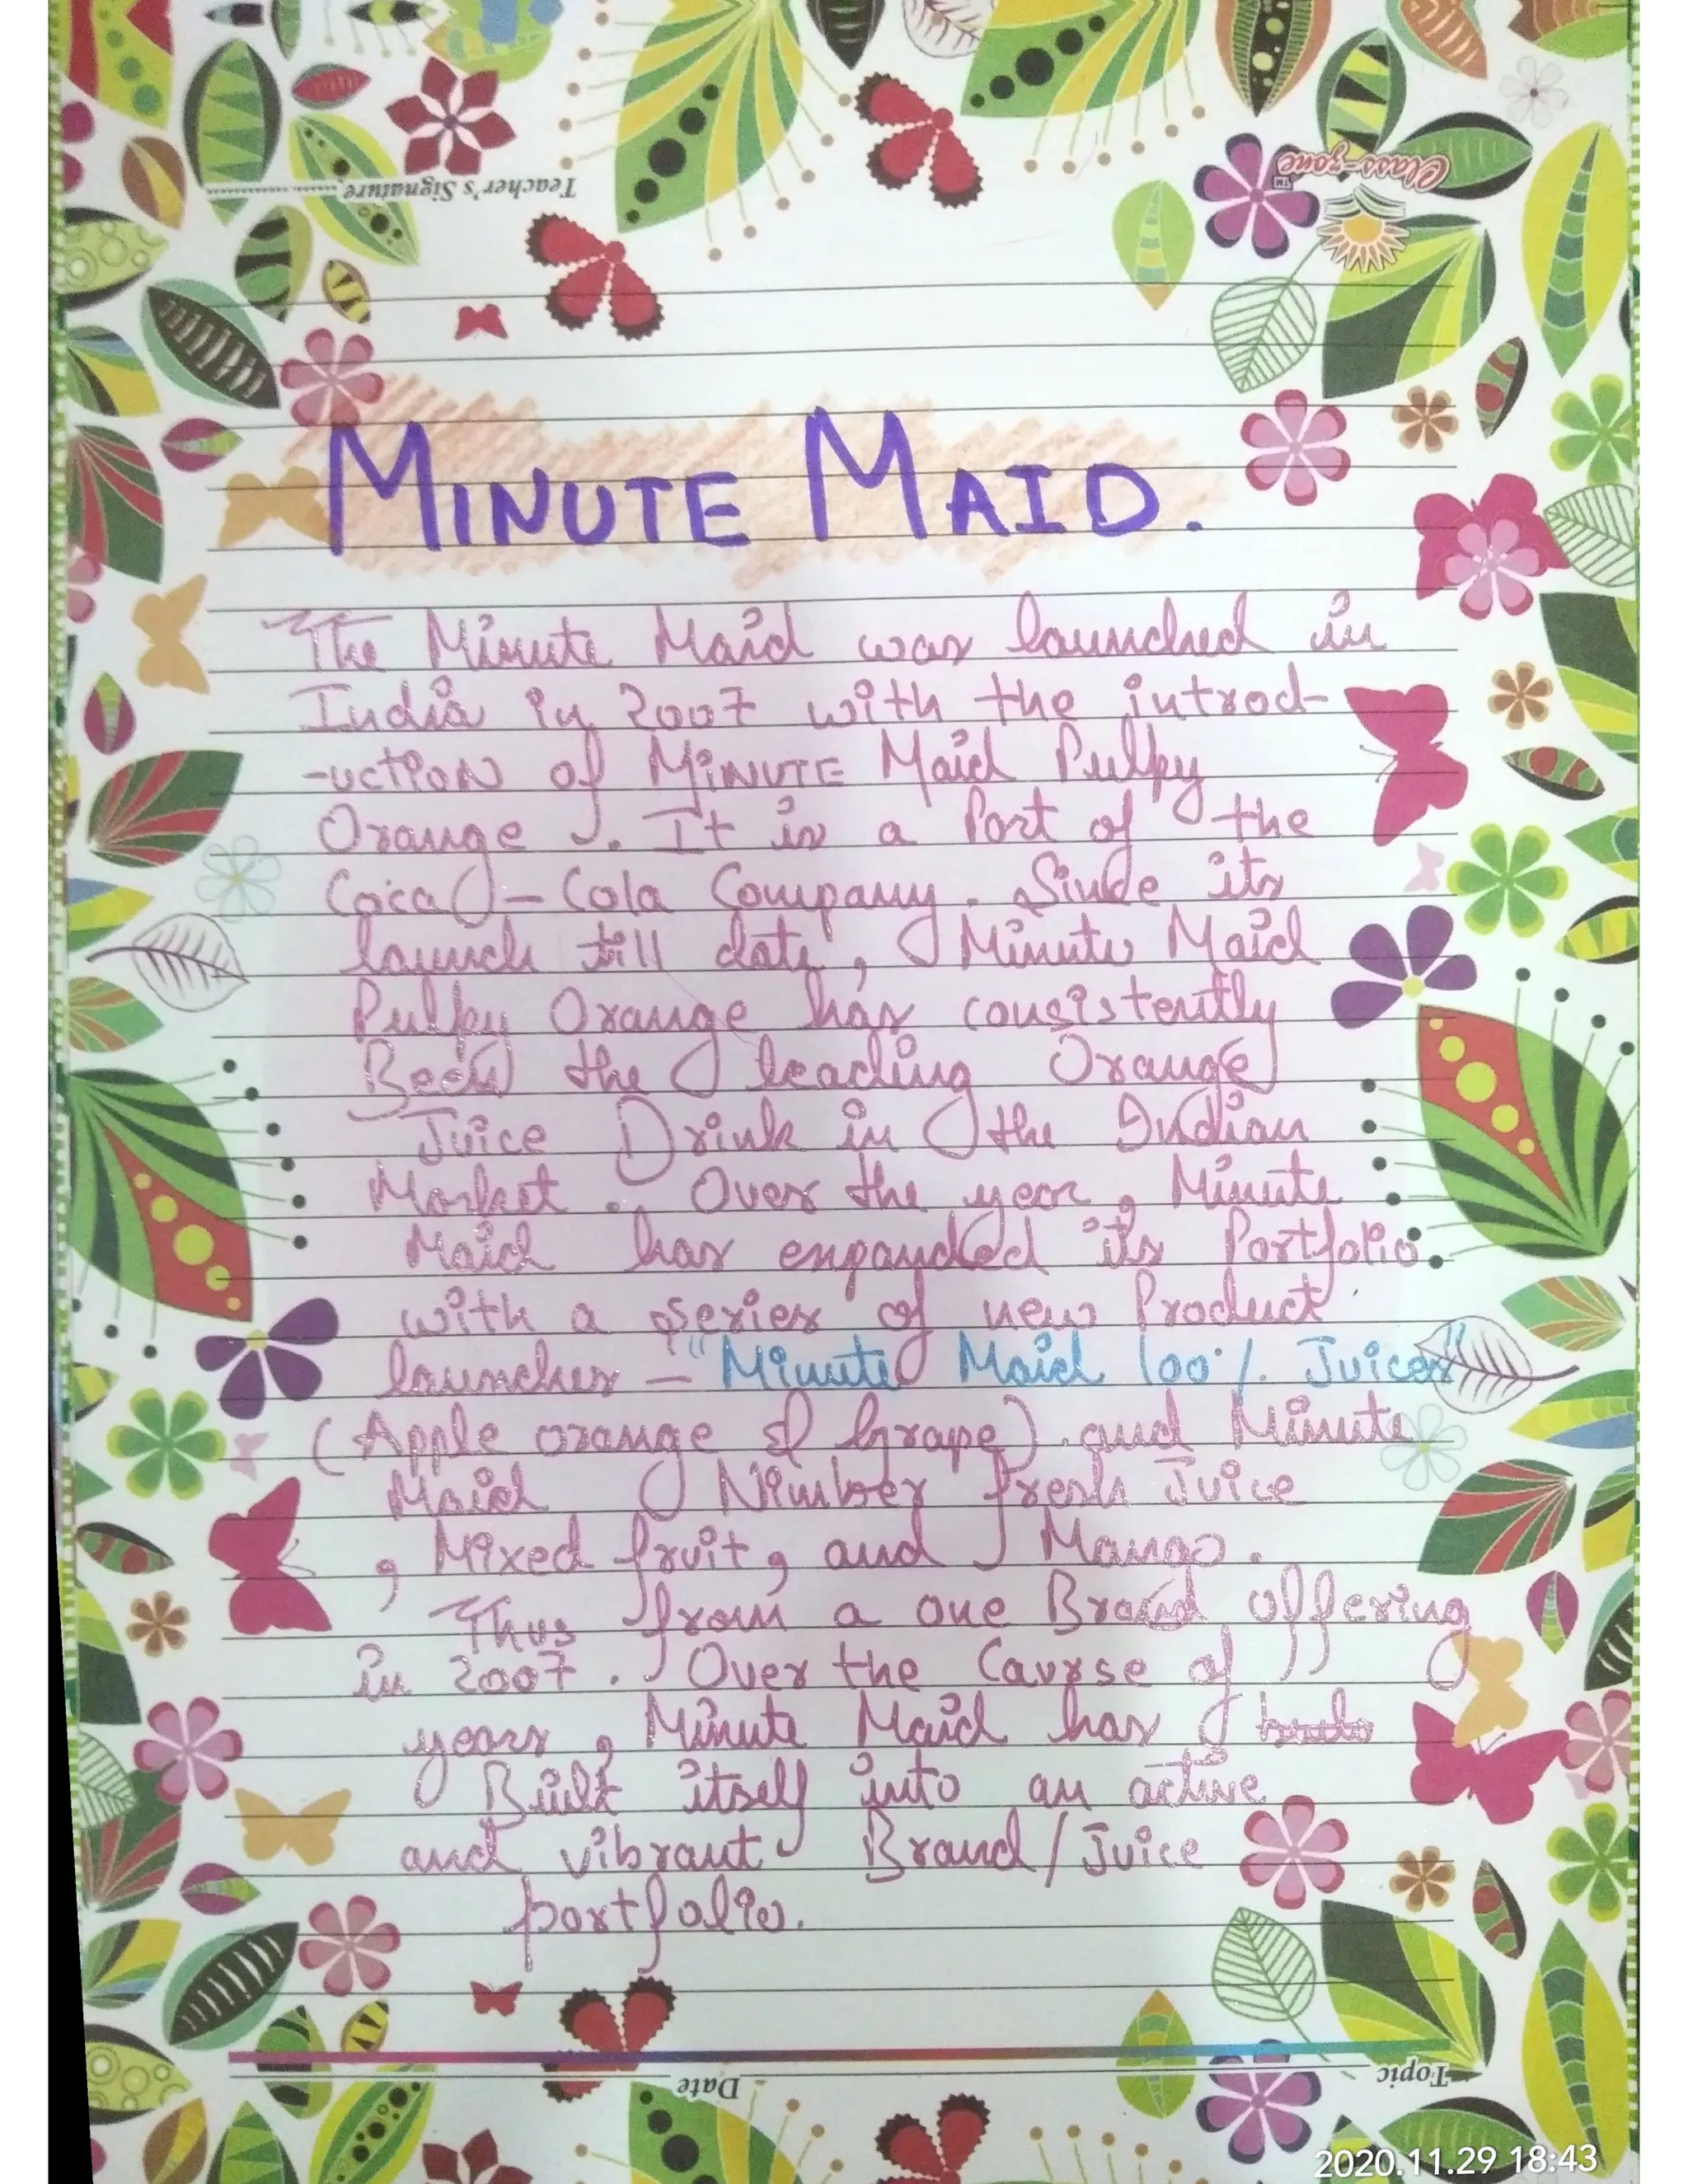 Teacher's Signature
Class-zone
TM
MINUTE MAID.
The Minute Maid was launched in
India in 2007 with the introd-
-uction of MINUTE Maid Pulpy
Orange . It is a Part of the
Coca - Cola Company . Since its
launch till date , Minute Maid
Pulpy Orange has consistently
Been the leading Orange
Juice Drink in the Indian
Market . Over the year , Minute
Maid has expanded its Portfolio
with a series of new Product
launches - "Minute Maid 100% Juices"
(Apple orange & Grape) and Minute
Maid Nimber fresh Juice
, Mixed fruit , and Mango .
Thus from a one Brand offering
in 2007 . Over the Caurse of
years , Minute Maid has
Built itself into an active
and vibrant Brand/Juice
portfolio.
Topic
Date
2020.11.29 18:43